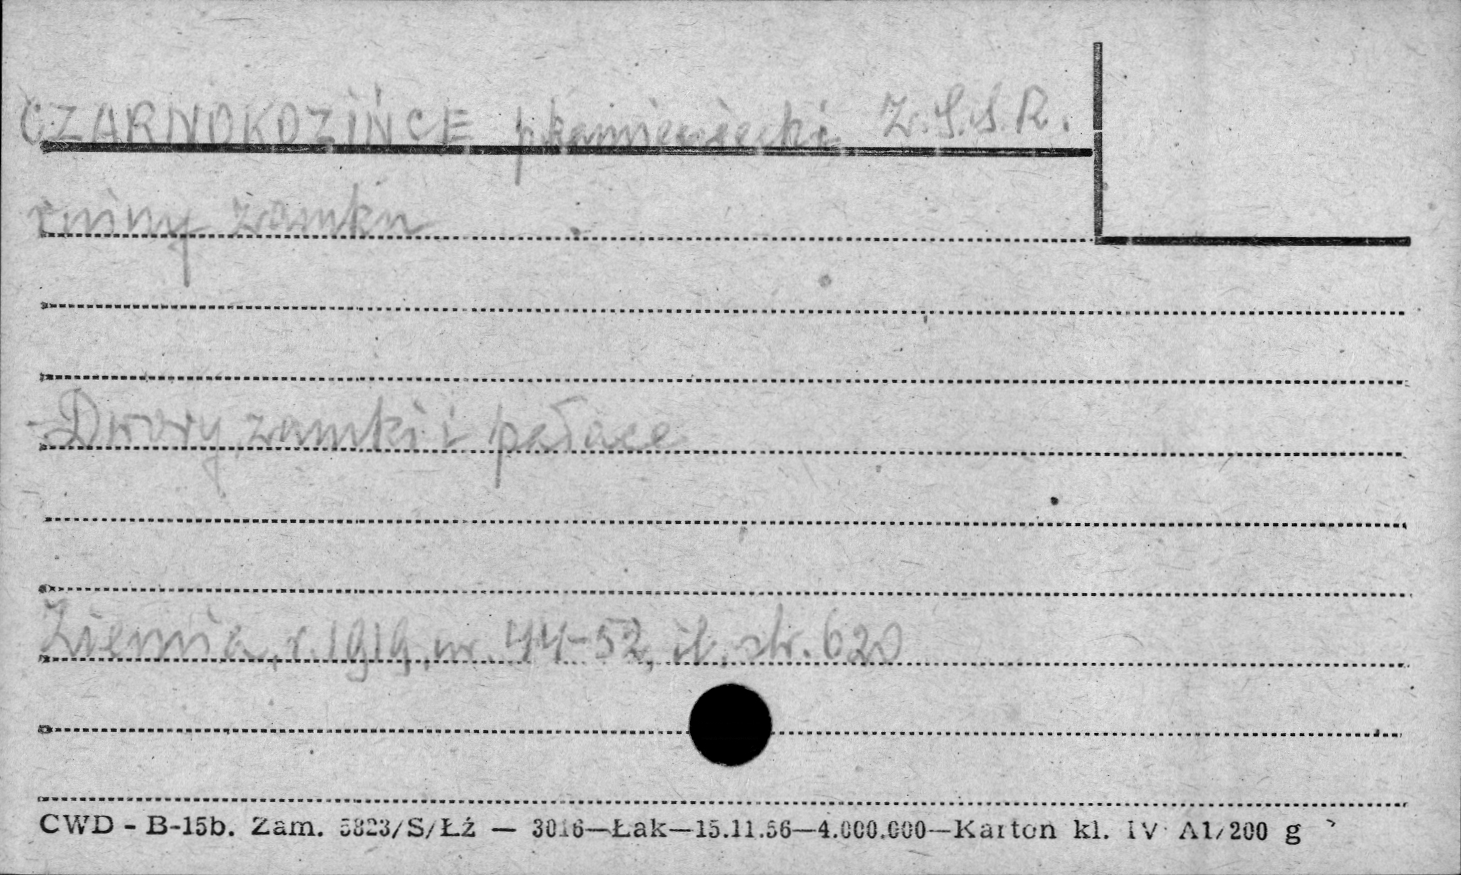 CZARNOKOZIŃCE p. kamieniecki Z.S.S.R.
ruiny zamku
- Dwory, zamki i pałace
Ziemia, r. 1919, nr. 44-52, il. str. 620
CWD - B-15b. Zam. 5823/S/Łż — 3016—Łak—15.11.56—4.000.000—Karton kl. IV A1/200 g